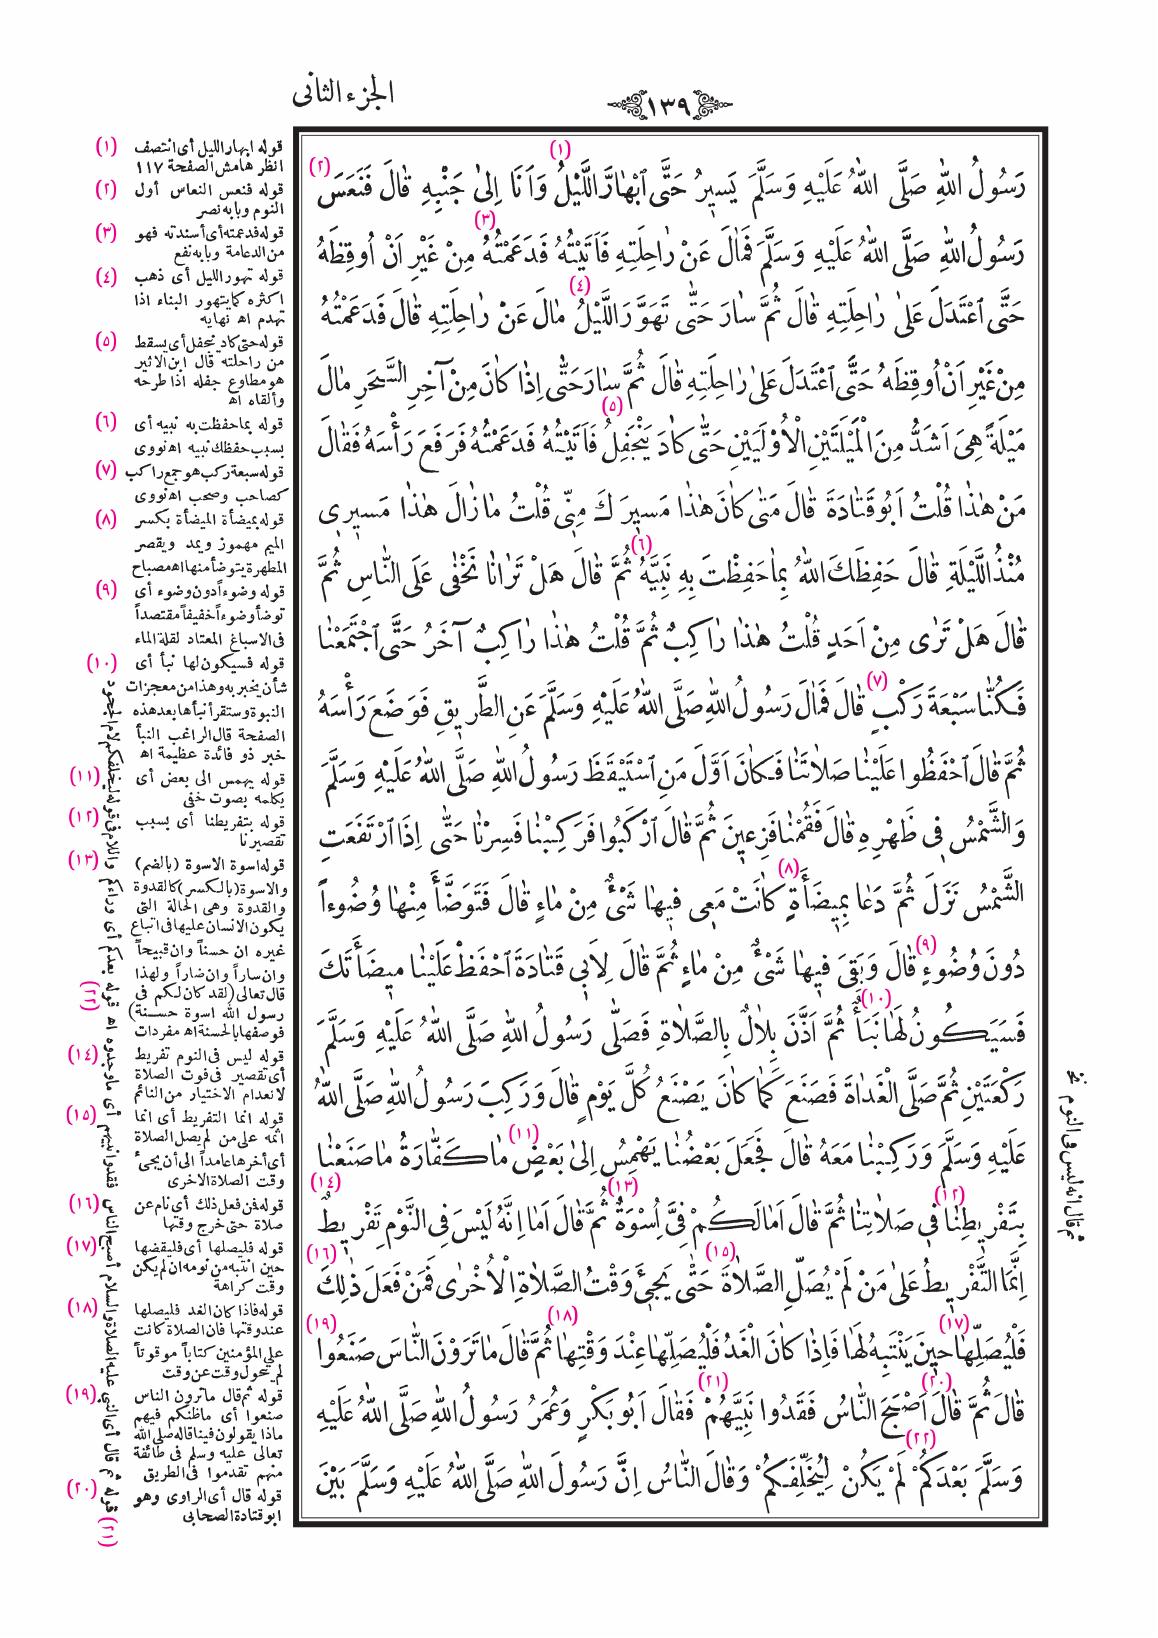 الجزء الثانى
١٣٩
رَسُولُ اللهِ صَلَّى اللهُ عَلَيْهِ وَسَلَّمَ يَسِيرُ حَتَّى ٱبْهَارَّ اللَّيْلُ (١) وَاَنَا اِلىٰ جَنْبِهِ قَالَ فَنَعَسَ (٢)
رَسُولُ اللهِ صَلَّى اللهُ عَلَيْهِ وَسَلَّمَ فَمَالَ عَنْ رَاحِلَتِهِ فَاَتَيْتُهُ فَدَعَمْتُهُ (٣) مِنْ غَيْرِ اَنْ اُوقِظَهُ
حَتَّى ٱعْتَدَلَ عَلىٰ رَاحِلَتِهِ قَالَ ثُمَّ سَارَ حَتّٰى تَهَوَّرَ اللَّيْلُ (٤) مَالَ عَنْ رَاحِلَتِهِ قَالَ فَدَعَمْتُهُ
مِنْ غَيْرِ اَنْ اُوقِظَهُ حَتَّى ٱعْتَدَلَ عَلىٰ رَاحِلَتِهِ قَالَ ثُمَّ سَارَ حَتّٰى اِذَا كَانَ مِنْ آخِرِ السَّحَرِ مَالَ
مَيْلَةً هِىَ اَشَدُّ مِنَ الْمَيْلَتَيْنِ الْاُولَيَيْنِ حَتّٰى كَادَ يَنْجَفِلُ (٥) فَاَتَيْتُهُ فَدَعَمْتُهُ فَرَفَعَ رَأْسَهُ فَقَالَ
مَنْ هٰذَا قُلْتُ اَبُو قَتَادَةَ قَالَ مَتٰى كَانَ هٰذَا مَسِيرَكَ مِنِّى قُلْتُ مَا زَالَ هٰذَا مَسِيرِى
مُنْذُ اللَّيْلَةِ قَالَ حَفِظَكَ اللهُ بِمَا حَفِظْتَ بِهِ نَبِيَّهُ (٦) ثُمَّ قَالَ هَلْ تَرَانَا نَخْفٰى عَلَى النَّاسِ ثُمَّ
قَالَ هَلْ تَرٰى مِنْ اَحَدٍ قُلْتُ هٰذَا رَاكِبٌ ثُمَّ قُلْتُ هٰذَا رَاكِبٌ آخَرُ حَتَّى ٱجْتَمَعْنَا
فَكُنَّا سَبْعَةَ رَكْبٍ (٧) قَالَ فَمَالَ رَسُولُ اللهِ صَلَّى اللهُ عَلَيْهِ وَسَلَّمَ عَنِ الطَّرِيقِ فَوَضَعَ رَأْسَهُ
ثُمَّ قَالَ ٱحْفَظُوا عَلَيْنَا صَلَاتَنَا فَكَانَ اَوَّلَ مَنِ ٱسْتَيْقَظَ رَسُولُ اللهِ صَلَّى اللهُ عَلَيْهِ وَسَلَّمَ
وَالشَّمْسُ فِى ظَهْرِهِ قَالَ فَقُمْنَا فَزِعِينَ ثُمَّ قَالَ ٱرْكَبُوا فَرَكِبْنَا فَسِرْنَا حَتّٰى اِذَا ٱرْتَفَعَتِ
الشَّمْسُ نَزَلَ ثُمَّ دَعَا بِمِيضَأَةٍ (٨) كَانَتْ مَعِى فِيهَا شَىْءٌ مِنْ مَاءٍ قَالَ فَتَوَضَّأَ مِنْهَا وُضُوءاً
دُونَ وُضُوءٍ (٩) قَالَ وَبَقِىَ فِيهَا شَىْءٌ مِنْ مَاءٍ ثُمَّ قَالَ لِاَبِى قَتَادَةَ ٱحْفَظْ عَلَيْنَا مِيضَأَتَكَ
فَسَيَكُونُ لَهَا نَبَأٌ (١٠) ثُمَّ اَذَّنَ بِلَالٌ بِالصَّلَاةِ فَصَلَّى رَسُولُ اللهِ صَلَّى اللهُ عَلَيْهِ وَسَلَّمَ
رَكْعَتَيْنِ ثُمَّ صَلَّى الْغَدَاةَ فَصَنَعَ كَمَا كَانَ يَصْنَعُ كُلَّ يَوْمٍ قَالَ وَرَكِبَ رَسُولُ اللهِ صَلَّى اللهُ
عَلَيْهِ وَسَلَّمَ وَرَكِبْنَا مَعَهُ قَالَ فَجَعَلَ بَعْضُنَا يَهْمِسُ اِلىٰ بَعْضٍ (١١) مَا كَفَّارَةُ مَا صَنَعْنَا
بِتَفْرِيطِنَا (١٢) فِى صَلَاتِنَا ثُمَّ قَالَ اَمَا لَكُمْ فِىَّ اُسْوَةٌ (١٣) ثُمَّ قَالَ اَمَا اِنَّهُ لَيْسَ فِى النَّوْمِ تَفْرِيطٌ (١٤)
اِنَّمَا التَّفْرِيطُ عَلىٰ مَنْ لَمْ يُصَلِّ الصَّلَاةَ (١٥) حَتّٰى يَجِىءَ وَقْتُ الصَّلَاةِ الْاُخْرٰى فَمَنْ فَعَلَ ذٰلِكَ (١٦)
فَلْيُصَلِّهَا (١٧) حِينَ يَنْتَبِهُ لَهَا فَاِذَا كَانَ الْغَدُ فَلْيُصَلِّهَا عِنْدَ وَقْتِهَا (١٨) ثُمَّ قَالَ مَا تَرَوْنَ النَّاسَ صَنَعُوا (١٩)
قَالَ ثُمَّ قَالَ (٢٠) اَصْبَحَ النَّاسُ فَقَدُوا نَبِيَّهُمْ (٢١) فَقَالَ اَبُو بَكْرٍ وَعُمَرُ رَسُولُ اللهِ صَلَّى اللهُ عَلَيْهِ
وَسَلَّمَ بَعْدَكُمْ (٢٢) لَمْ يَكُنْ لِيُخَلِّفَكُمْ وَقَالَ النَّاسُ اِنَّ رَسُولَ اللهِ صَلَّى اللهُ عَلَيْهِ وَسَلَّمَ بَيْنَ
ثم قال انه ليس فى النوم نخ
(١) قوله ابهار الليل أى انتصف
انظر هامش الصفحة ١١٧
(٢) قوله فنعس النعاس أول
النوم وبابه نصر
(٣) قوله فدعمته أى أسندته فهو
من الدعامة وبابه نفع
(٤) قوله تهور الليل أى ذهب
اكثره كما يتهور البناء اذا
تهدم اه نهايه
(٥) قوله حتى كاد ينجفل أى يسقط
من راحلته قال ابن الاثير
هو مطاوع جفله اذا طرحه
وألقاه اه
(٦) قوله بما حفظت به نبيه أى
بسبب حفظك نبيه اه نووى
(٧) قوله سبعة ركب هو جمع راكب
كصاحب وصحب اه نووى
(٨) قوله بميضأة الميضأة بكسر
الميم مهموز ويمد ويقصر
المطهرة يتوضأ منها اه مصباح
(٩) قوله وضوءاً دون وضوء أى
توضأ وضوءاً خفيفاً مقتصداً
فى الاسباغ المعتاد لقلة الماء
(١٠) قوله فسيكون لها نبأ أى
شأن يخبر به وهذا من معجزات
النبوة وستقرأ نبأها بعد هذه
الصفحة قال الراغب النبأ
خبر ذو فائدة عظيمة اه
(١١) قوله يهمس الى بعض أى
يكلمه بصوت خفى
(١٢) قوله بتفريطنا أى بسبب
تقصيرنا
(١٣) قوله اسوة الاسوة (بالضم)
والاسوة (بالكسر) كالقدوة
والقدوة وهى الحالة التى
يكون الانسان عليها فى اتباع
غيره ان حسناً وان قبيحاً
وان ساراً وان ضاراً ولهذا
قال تعالى (لقد كان لكم فى
رسول الله اسوة حسنة)
فوصفها بالحسنة اه مفردات
(١٤) قوله ليس فى النوم تفريط
أى تقصير فى فوت الصلاة
لانعدام الاختيار من النائم
(١٥) قوله انما التفريط أى انما
اثمه على من لم يصل الصلاة
أى أخرها عامداً الى أن يجىء
وقت الصلاة الاخرى
(١٦) قوله فمن فعل ذلك أى نام عن
صلاة حتى خرج وقتها
(١٧) قوله فليصلها أى فليقضها
حين انتبه من نومه ان لم يكن
وقت كراهة
(١٨) قوله فاذا كان الغد فليصلها
عند وقتها فان الصلاة كانت
على المؤمنين كتاباً موقوتاً
لم يحول وقت عن وقت
(١٩) قوله ثم قال ماترون الناس
صنعوا أى ماظنكم فيهم
ماذا يقولون فينا قاله صلى الله
تعالى عليه وسلم فى طائفة
منهم تقدموا فى الطريق
(٢٠) قوله قال أى الراوى وهو
ابو قتادة الصحابى
(٢١) قوله ثم قال أى النبى عليه الصلاة والسلام أصبح الناس فقدوا نبيهم أى ماوجدوه اه (٢٢) قوله بعدكم أى وراءكم واللام فى قوله ليخلفكم لام الجحود